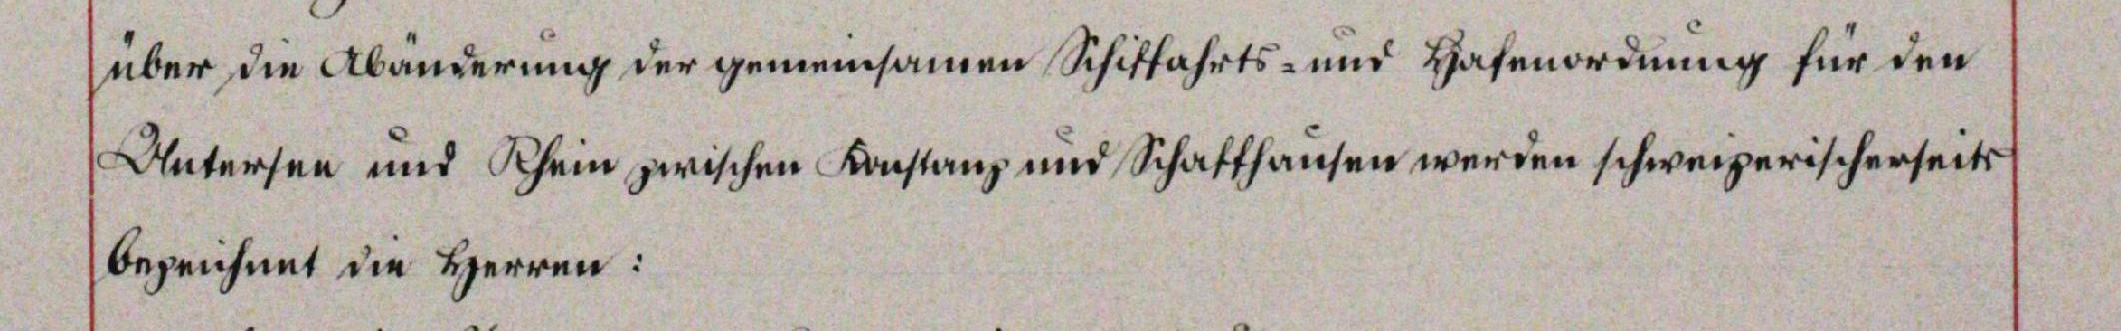 über die Abänderung der gemeinsamen Schiffahrts- und Hafenordnung für den
Untersee und Rhein zwischen Konstanz und Schaffhausen werden schweizerischerseits
bezeichnet die Herren: